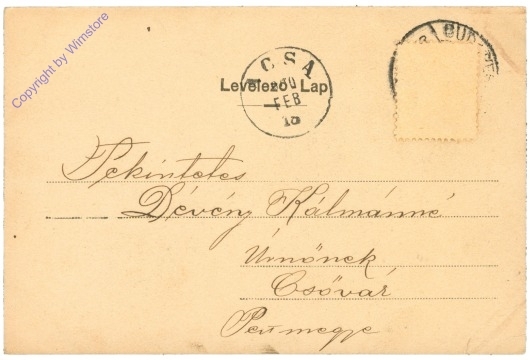 Copyright by Wimstore
BUDAPES
ACSA
Levelező Lap
FEB
18
Tekintetes
Dévény Kálmánné
Úrnőnek
Csővár
Pestmegye